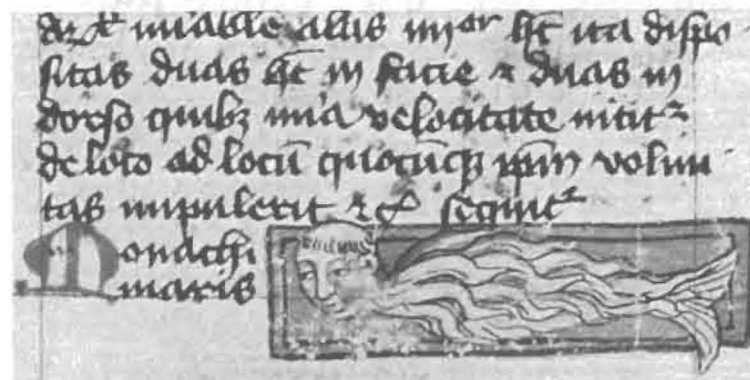 mirabile alas iiijor hт ita dispo
sitas duas hт in facie ⁊ duas in
dorso quibꝫ mira velocitate nitit᷑
de loco ad locū quocūqꝫ ip̄m volun
tas impulerit ⁊c̄ sequit᷑
Monachi
maris